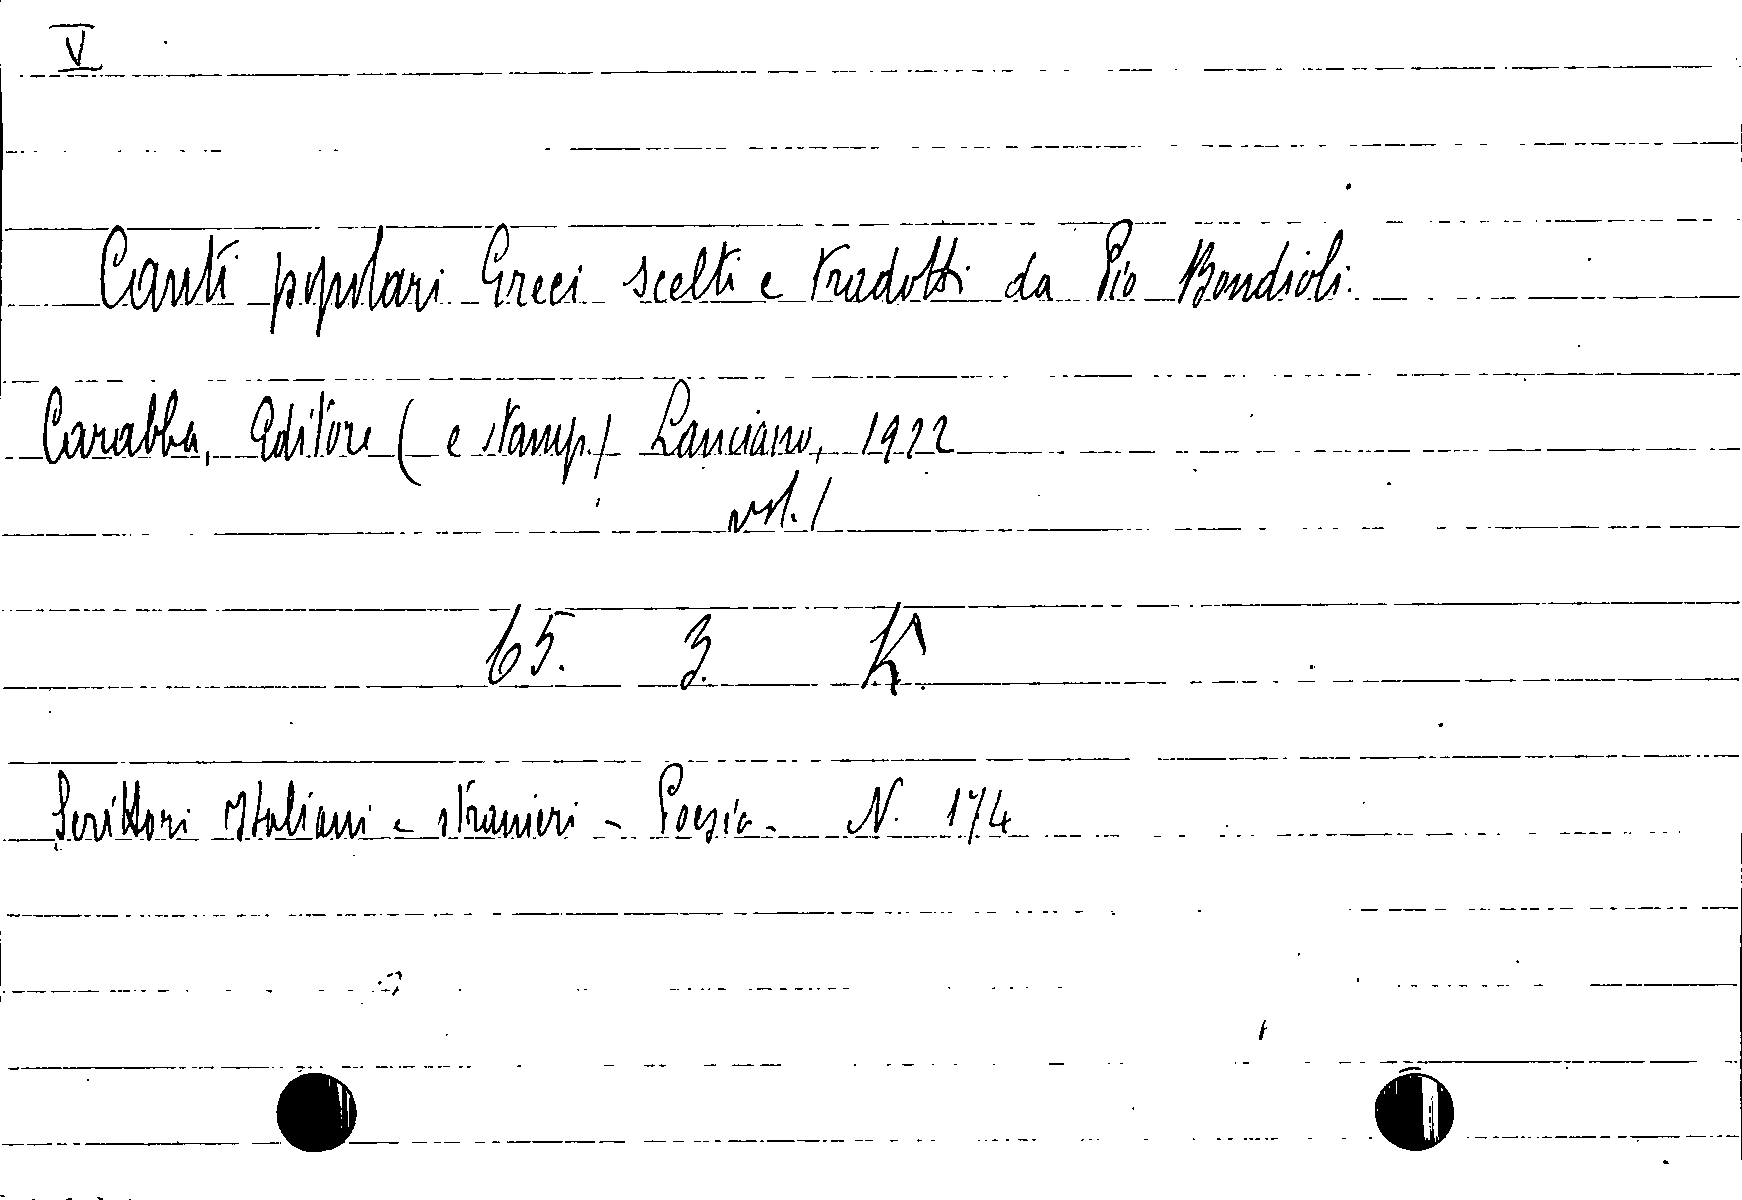 V
Canti popolari Greci scelti e tradotti da Pio Bondioli.
Carabba, Editore (e stamp.) Lanciano, 1922
vol. 1
65. 3. K.
Scrittori Italiani e stranieri - Poesia - N. 174